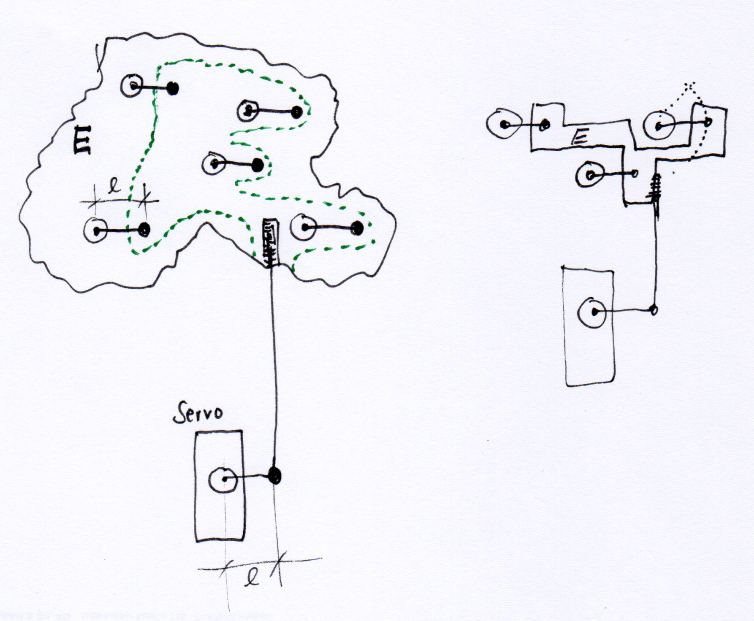 E
E
l
Servo
l